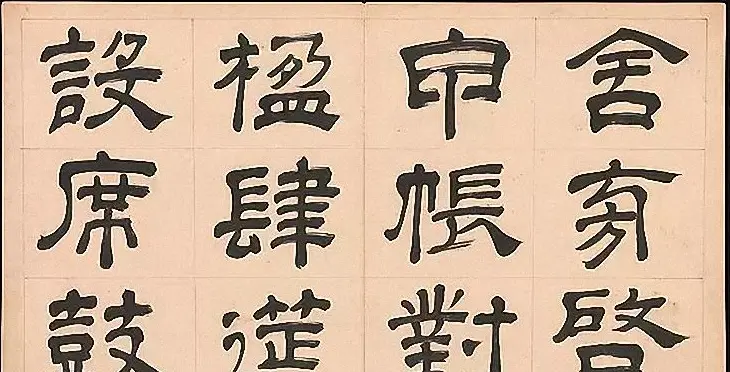 舍旁啓
甲帳對
楹肆筵
設席鼓